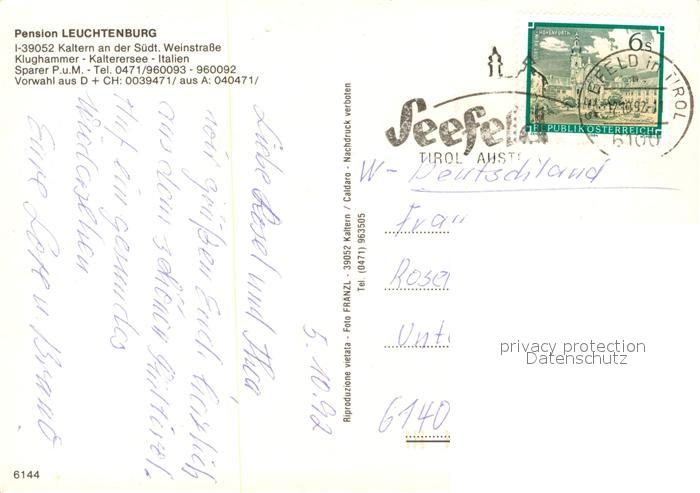 Pension LEUCHTENBURG
I-39052 Kaltern an der Südt. Weinstraße
Klughammer - Kalterersee - Italien
Sparer P.u.M. - Tel. 0471/960093 - 960092
Vorwahl aus D + CH: 0039471/ aus A: 040471/
5.10.92
Liebe Resel und Thea
wir grüßen Euch herzlich
aus dem schönen Südtirol.
Auf ein gesundes
Wiedersehen.
Eure Lore u. Bruno
6144
Riproduzione vietata - Foto FRANZL - 39052 Kaltern / Caldaro - Nachdruck verboten
Tel. (0471) 963505
6 s
REPUBLIK ÖSTERREICH
Seefeld
TIROL AUST
SEEFELD in TIROL
6100
W- Deutschland
Frau
Rose
Unt
6140
privacy protection
Datenschutz